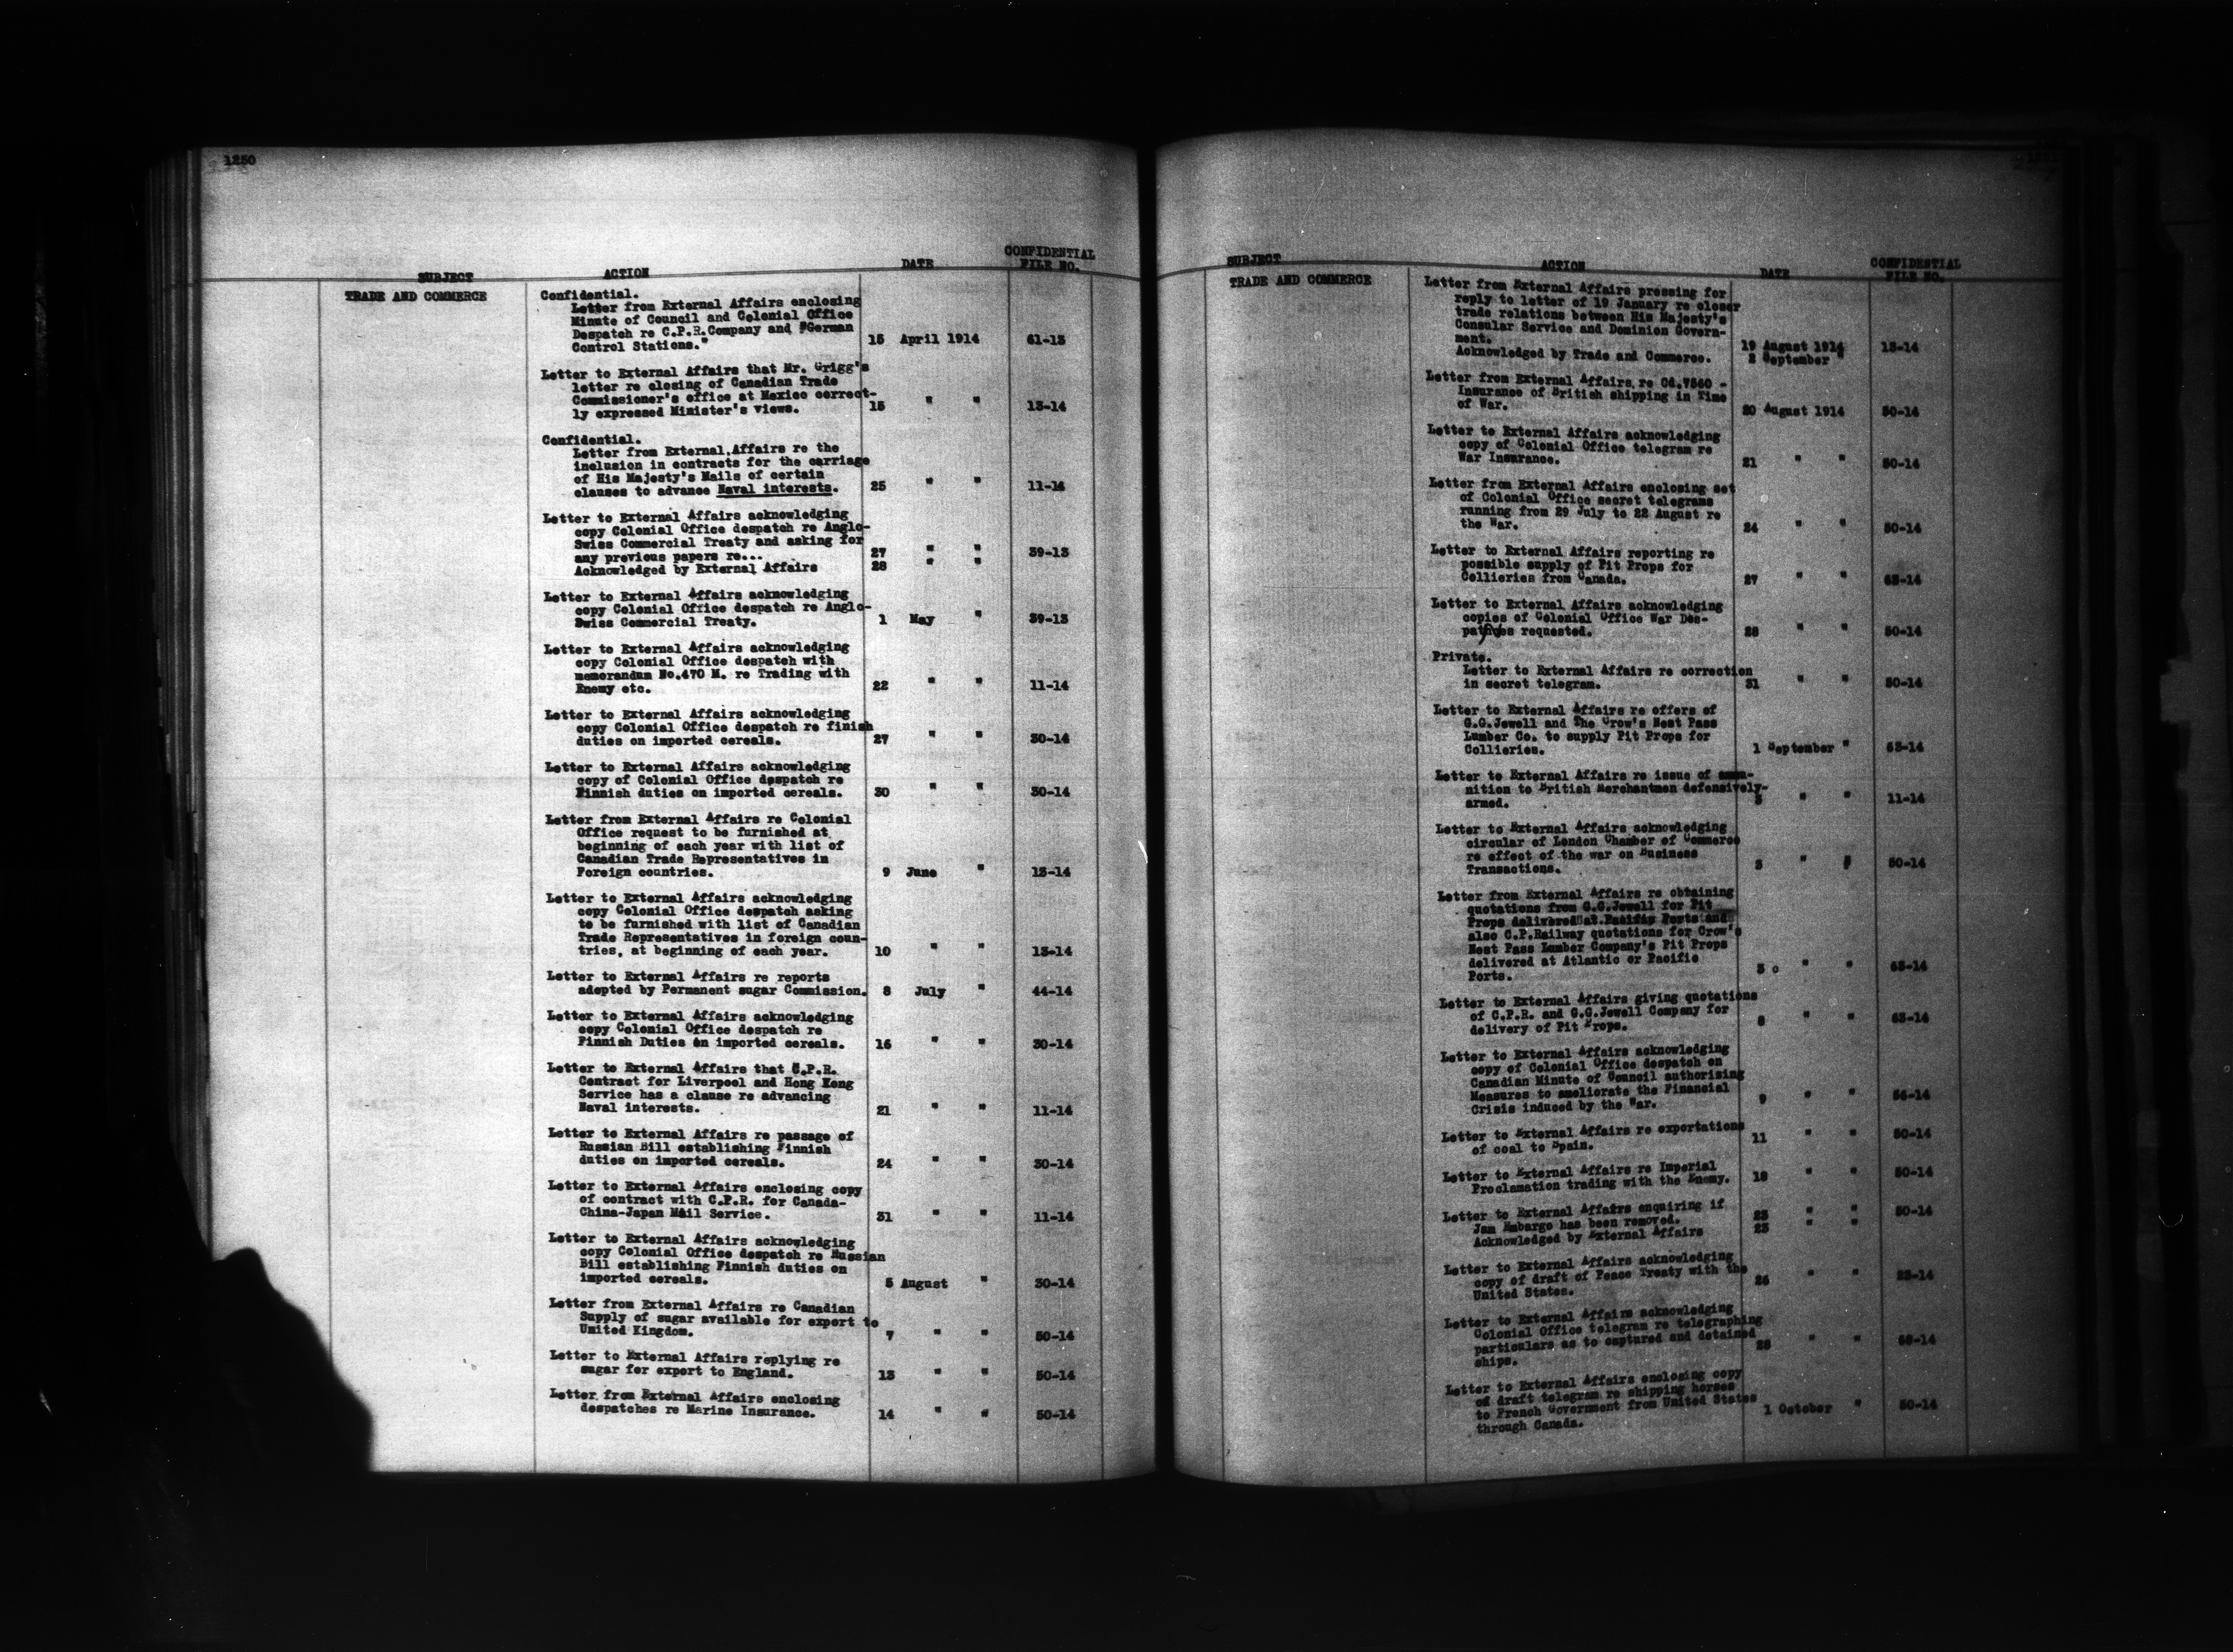 1250
SUBJECT ACTION DATE CONFIDENTIAL FILE NO.
TRADE AND COMMERCE
Confidential.
Letter from External Affairs enclosing
Minute of Council and Colonial Office
Despatch re C.P.R.Company and "German
Control Stations." 15 April 1914 61-13
Letter to External Affairs that Mr. Grigg's
letter re closing of Canadian Trade
Commissioner's office at Mexico correct-
ly expressed Minister's views. 15 " " 13-14
Confidential.
Letter from External Affairs re the
inclusion in contracts for the carriage
of His Majesty's Mails of certain
clauses to advance Naval interests. 25 " " 11-14
Letter to External Affairs acknowledging
copy Colonial Office despatch re Anglo-
Swiss Commercial Treaty and asking for
any previous papers re... 27 " " 39-13
Acknowledged by External Affairs 28 " "
Letter to External Affairs acknowledging
copy Colonial Office despatch re Anglo-
Swiss Commercial Treaty. 1 May " 39-13
Letter to External Affairs acknowledging
copy Colonial Office despatch with
memorandum No.470 M. re Trading with
Enemy etc. 22 " " 11-14
Letter to External Affairs acknowledging
copy Colonial Office despatch re finish
duties on imported cereals. 27 " " 30-14
Letter to External Affairs acknowledging
copy of Colonial Office despatch re
Finnish duties on imported cereals. 30 " " 30-14
Letter from External Affairs re Colonial
Office request to be furnished at
beginning of each year with list of
Canadian Trade Representatives in
Foreign countries. 9 June " 13-14
Letter to External Affairs acknowledging
copy Colonial Office despatch asking
to be furnished with list of Canadian
Trade Representatives in foreign coun-
tries, at beginning of each year. 10 " " 13-14
Letter to External Affairs re reports
adopted by Permanent sugar Commission. 8 July " 44-14
Letter to External Affairs acknowledging
copy Colonial Office despatch re
Finnish Duties on imported cereals. 16 " " 30-14
Letter to External Affairs that C.P.R.
Contract for Liverpool and Hong Kong
Service has a clause re advancing
Naval interests. 21 " " 11-14
Letter to External Affairs re passage of
Russian Bill establishing Finnish
duties on imported cereals. 24 " " 30-14
Letter to External Affairs enclosing copy
of contract with C.P.R. for Canada-
China-Japan Mail Service. 31 " " 11-14
Letter to External Affairs acknowledging
copy Colonial Office despatch re Russian
Bill establishing Finnish duties on
imported cereals. 5 August " 30-14
Letter from External Affairs re Canadian
Supply of sugar available for export to
United Kingdom. 7 " " 50-14
Letter to External Affairs replying re
sugar for export to England. 13 " " 50-14
Letter from External Affairs enclosing
despatches re Marine Insurance. 14 " " 50-14
SUBJECT ACTION DATE CONFIDENTIAL FILE NO.
TRADE AND COMMERCE
Letter from External Affairs pressing for
reply to letter of 19 January re closer
trade relations between His Majesty's
Consular Service and Dominion Govern-
ment. 19 August 1914 13-14
Acknowledged by Trade and Commerce. 2 September "
Letter from External Affairs re Cd.7560 -
Insurance of British shipping in Time
of War. 20 August 1914 50-14
Letter to External Affairs acknowledging
copy of Colonial Office telegram re
War Insurance. 21 " " 50-14
Letter from External Affairs enclosing set
of Colonial Office secret telegrams
running from 29 July to 22 August re
the War. 24 " " 50-14
Letter to External Affairs reporting re
possible supply of Pit Props for
Collieries from Canada. 27 " " 63-14
Letter to External Affairs acknowledging
copies of Colonial Office War Des-
patches requested. 28 " " 50-14
Private.
Letter to External Affairs re correction
in secret telegram. 31 " " 50-14
Letter to External Affairs re offers of
G.G.Jewell and The Crow's Nest Pass
Lumber Co. to supply Pit Props for
Collieries. 1 September " 63-14
Letter to External Affairs re issue of ammu-
nition to British Merchantmen defensively-
armed. 3 " " 11-14
Letter to External Affairs acknowledging
circular of London Chamber of Commerce
re effect of the war on Business
Transactions. 3 " " 50-14
Letter from External Affairs re obtaining
quotations from G.G.Jewell for Pit
Props delivered at Pacific Ports and
also C.P.Railway quotations for Crow's
Nest Pass Lumber Company's Pit Props
delivered at Atlantic or Pacific
Ports. 3 " " 63-14
Letter to External Affairs giving quotations
of C.P.R. and G.G.Jewell Company for
delivery of Pit Props. 8 " " 63-14
Letter to External Affairs acknowledging
copy of Colonial Office despatch on
Canadian Minute of Council authorising
Measures to ameliorate the Financial
Crisis induced by the War. 9 " " 56-14
Letter to External Affairs re exportations
of coal to Spain. 11 " " 50-14
Letter to External Affairs re Imperial
Proclamation trading with the Enemy. 18 " " 50-14
Letter to External Affairs enquiring if
Jam Embargo has been removed. 23 " " 50-14
Acknowledged by External Affairs 23 " "
Letter to External Affairs acknowledging
copy of draft of Peace Treaty with the
United States. 26 " " 23-14
Letter to External Affairs acknowledging
Colonial Office telegram re telegraphing
particulars as to captured and detained
ships. 28 " " 68-14
Letter to External Affairs enclosing copy
of draft telegram re shipping horses
to French Government from United States
through Canada. 1 October " 50-14